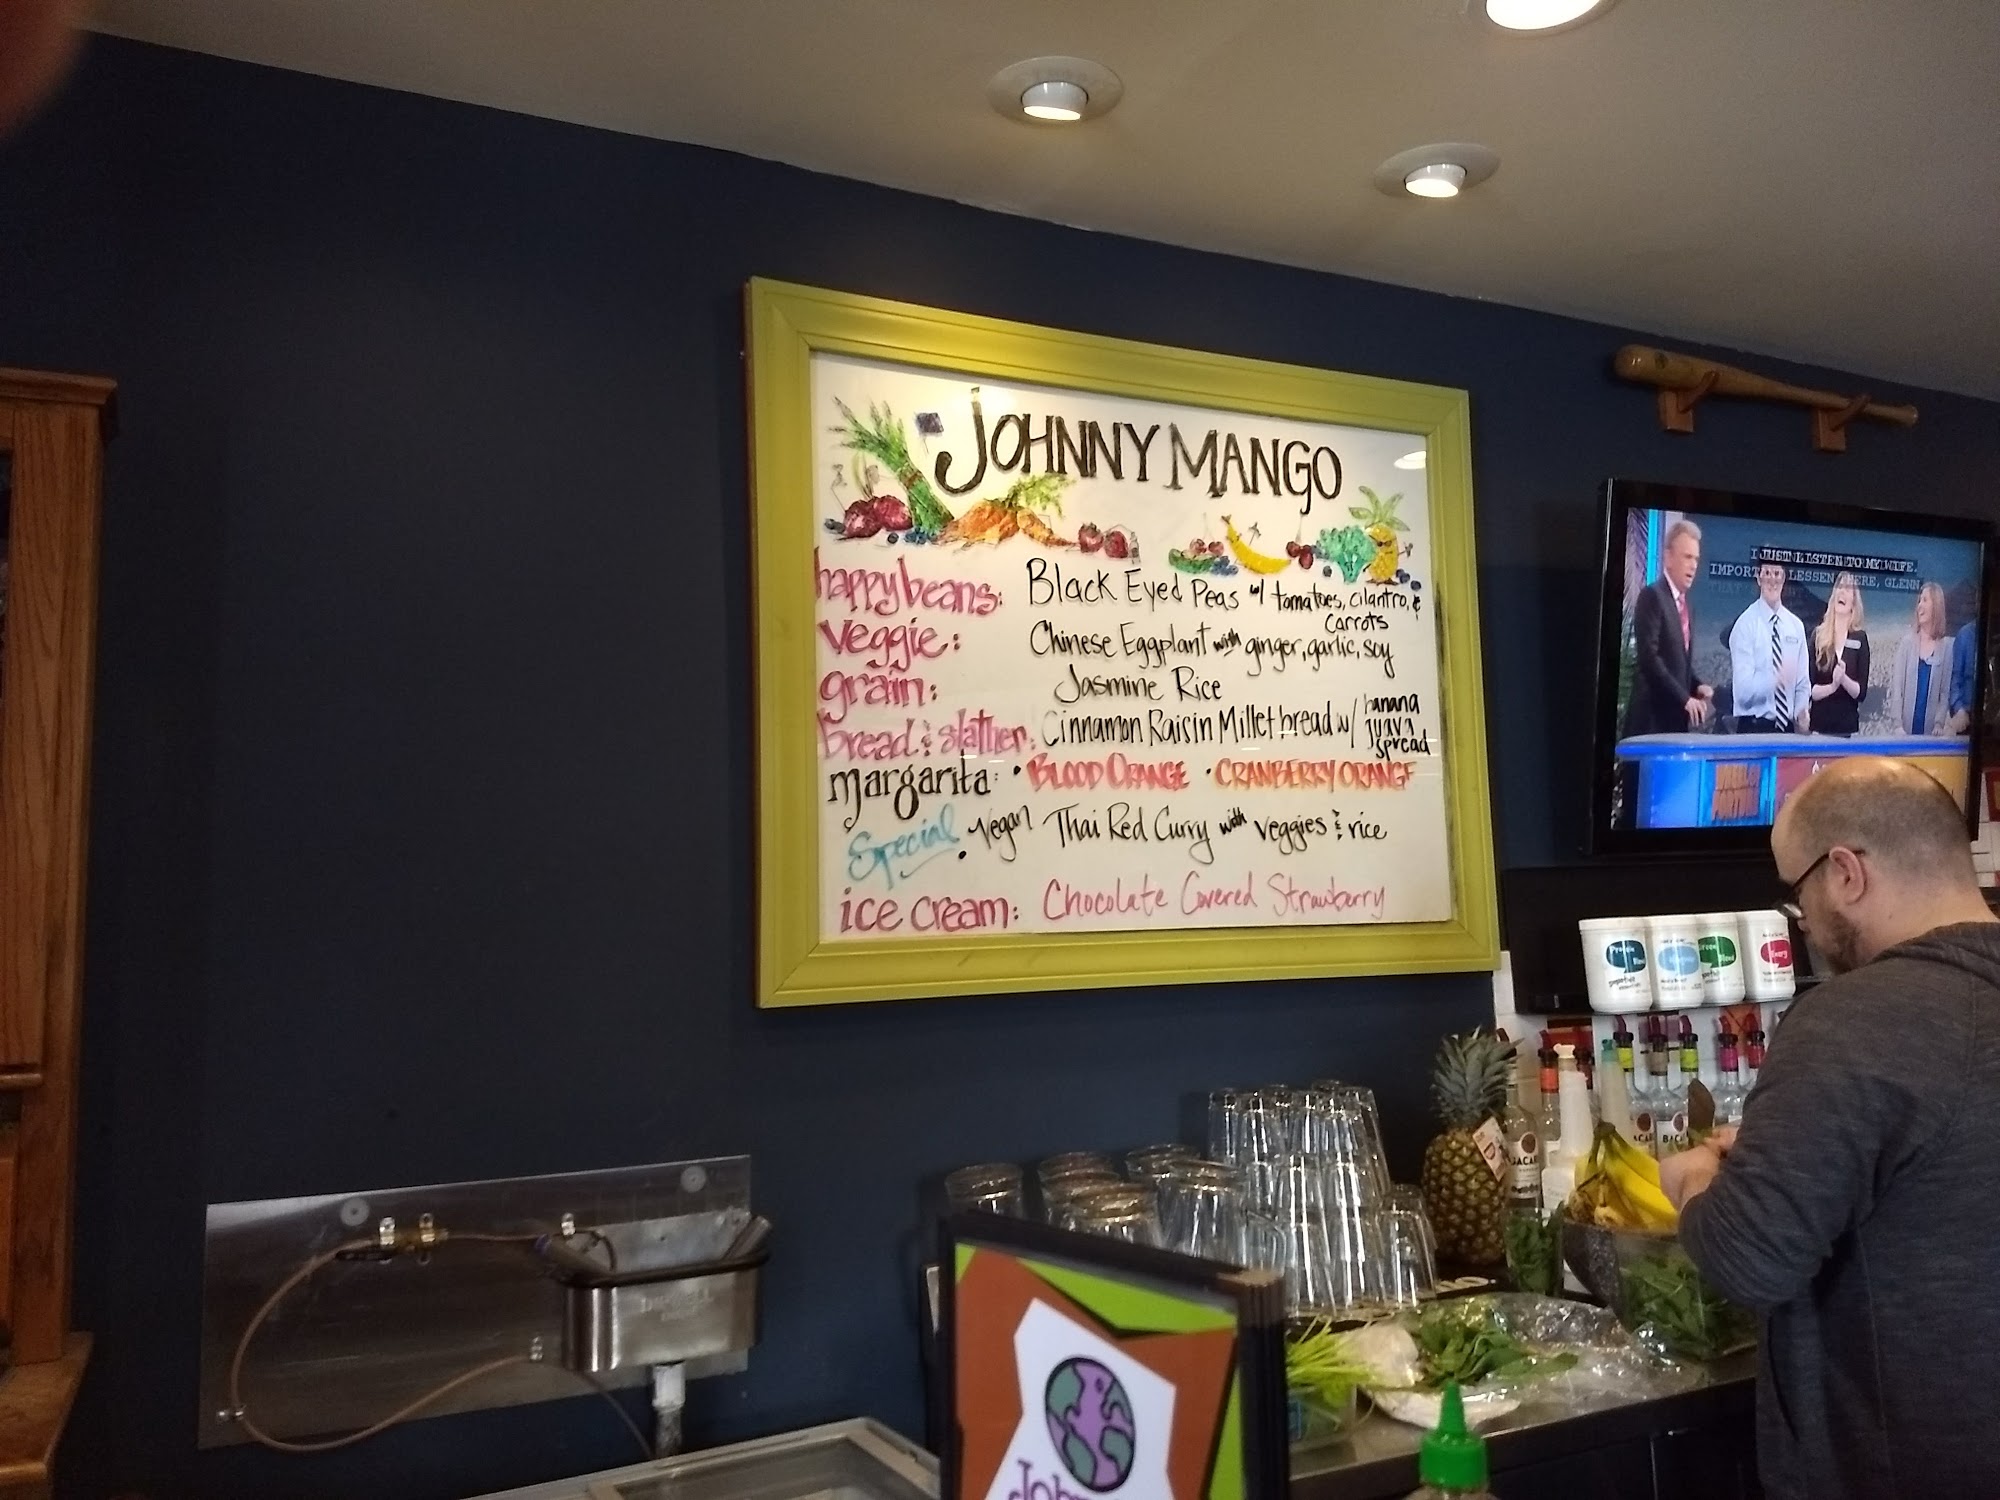 JOHNNY MANGO
happy beans: Black Eyed Peas w/ tomatoes, cilantro, &
carrots
Veggie: Chinese Eggplant with ginger, garlic, soy
grain: Jasmine Rice
bread & slather: Cinnamon Raisin Millet bread w/ banana
juava
spread
margarita: • BLOOD ORANGE • CRANBERRY ORANGE
Special • Vegan Thai Red Curry with veggies & rice
ice cream: Chocolate Covered Strawberry
I JUST LISTEN TO MY WIFE.
IMPORTANT LESSEN THERE, GLENN.
Protein
Blend
BACARDI
BACA